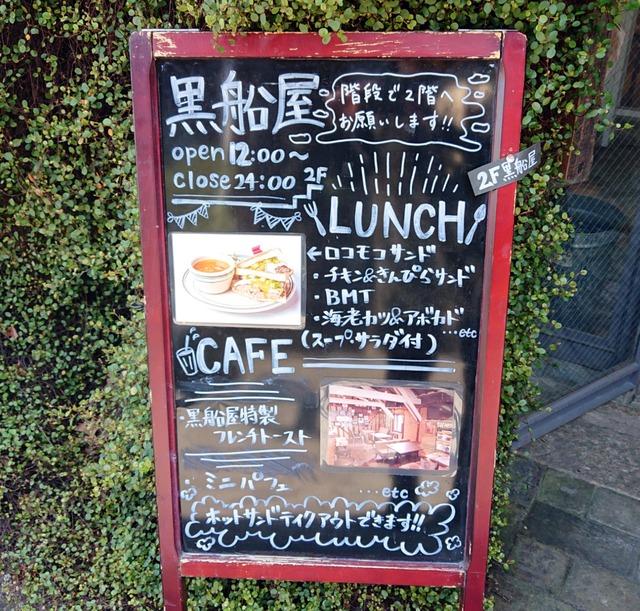 黒船屋
階段で2階へ
お願いします!!
open 12:00~
close 24:00
2F
2F 黒船屋
LUNCH
←ロコモコサンド
・チキン&きんぴらサンド
・BMT
・海老カツ&アボカド
…etc
(スープ・サラダ付)
CAFE
・黒船屋特製
フレンチトースト
・ミニパフェ
…etc
ホットサンドテイクアウトできます!!